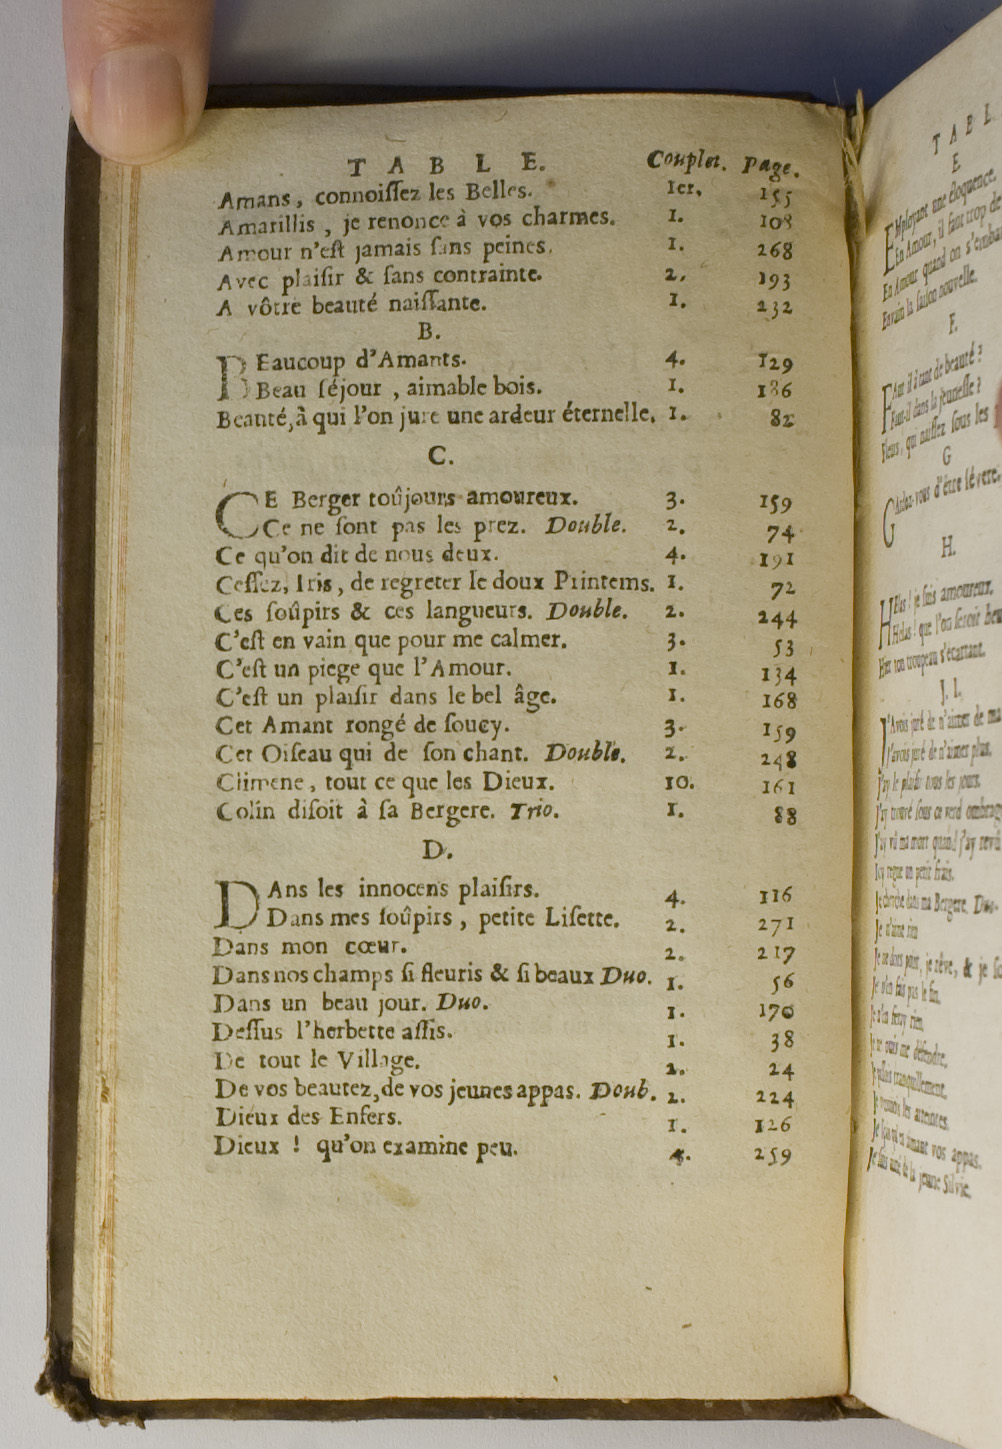 TABLE. Couplet. Page.
Amans, connoiſſez les Belles. 1er. 155
Amarillis, je renonce à vos charmes. 1. 108
Amour n'eſt jamais ſans peines. 1. 268
Avec plaiſir & ſans contrainte. 2. 193
A vôtre beauté naiſſante. 1. 232
B.
BEaucoup d'Amants. 4. 129
Beau ſéjour, aimable bois. 1. 186
Beauté, à qui l'on jure une ardeur éternelle. 1. 82
C.
CE Berger toûjours amoureux. 3. 159
Ce ne ſont pas les prez. Double. 2. 74
Ce qu'on dit de nous deux. 4. 191
Ceſſez, Iris, de regreter le doux Printems. 1. 72
Ces ſoûpirs & ces langueurs. Double. 2. 244
C'eſt en vain que pour me calmer. 3. 53
C'eſt un piege que l'Amour. 1. 134
C'eſt un plaiſir dans le bel âge. 1. 168
Cet Amant rongé de ſoucy. 3. 159
Cet Oiſeau qui de ſon chant. Double. 2. 248
Climene, tout ce que les Dieux. 10. 161
Colin diſoit à ſa Bergere. Trio. 1. 88
D.
DAns les innocens plaiſirs. 4. 116
Dans mes ſoûpirs, petite Liſette. 2. 271
Dans mon cœur. 2. 217
Dans nos champs ſi fleuris & ſi beaux Duo. 1. 56
Dans un beau jour. Duo. 1. 170
Deſſus l'herbette aſſis. 1. 38
De tout le Village. 2. 24
De vos beautez, de vos jeunes appas. Doub. 2. 224
Dieux des Enfers. 1. 126
Dieux ! qu'on examine peu. 4. 259
TABL
E.
EMployant une éloquence.
En Amour, il faut trop de
En Amour quand on s'emba
Envain la ſaiſon nouvelle.
F.
FAut il à tant de beauté ?
Faut-il dans la jeuneſſe ?
Fleurs, qui naiſſez ſous les
G
GArdez-vous d'être ſévere.
H.
HElas ! je ſuis amoureux.
Helas ! que l'on ſeroit heu
Hier ton troupeau s'écartant.
J. I.
J'Avois juré de n'aimer de ma
J'avois juré de n'aimer plus.
J'ay le plaiſir tous les jours.
J'ay trouvé ſous ce verd ombrag
J'ay vû ma mort quand j'ay revû
Icy regne un petit frais.
Je cherche dans ma Bergere. Dou-
Je n'aime rien
Je ne dors pas, je rêve, & je ſo
Je n'en fais pas le fin.
Je n'en feray rien.
Je ne puis me défendre.
tranquillement.
les atteintes.
amant vos appas.
de la jeune Silvie.